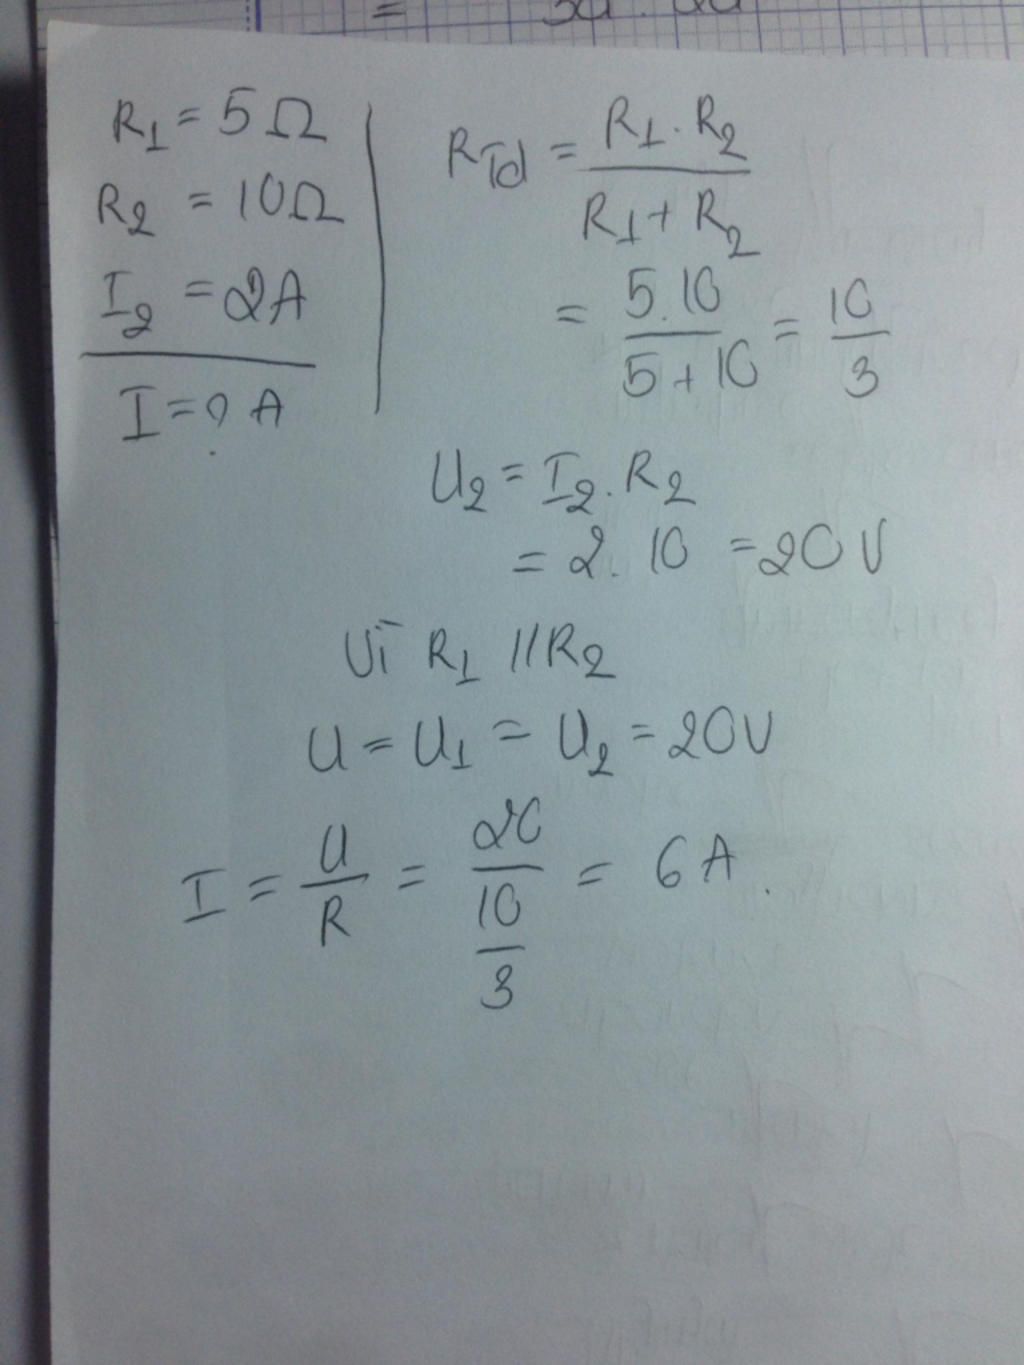 R1 = 5Ω
R2 = 10Ω
I2 = 2A
I = ? A
RTđ = R1 . R2 / R1 + R2
= 5.10 / 5+10 = 10 / 3
U2 = I2 . R2
= 2. 10 = 20V
Vì R1 // R2
U = U1 = U2 = 20V
I = U / R = 20 / 10 / 3 = 6A.